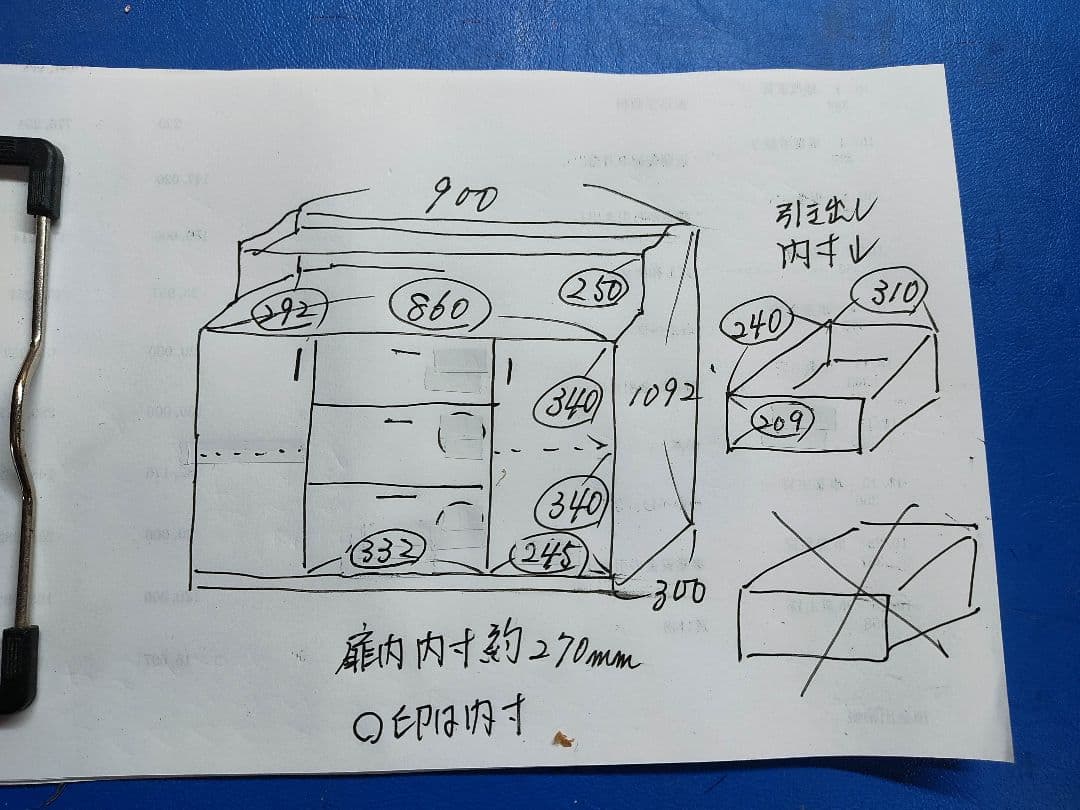 900
引き出し
内寸↓
292
860
250
240
310
340
1092
209
340
332
245
300
扉内内寸約270mm
○印は内寸